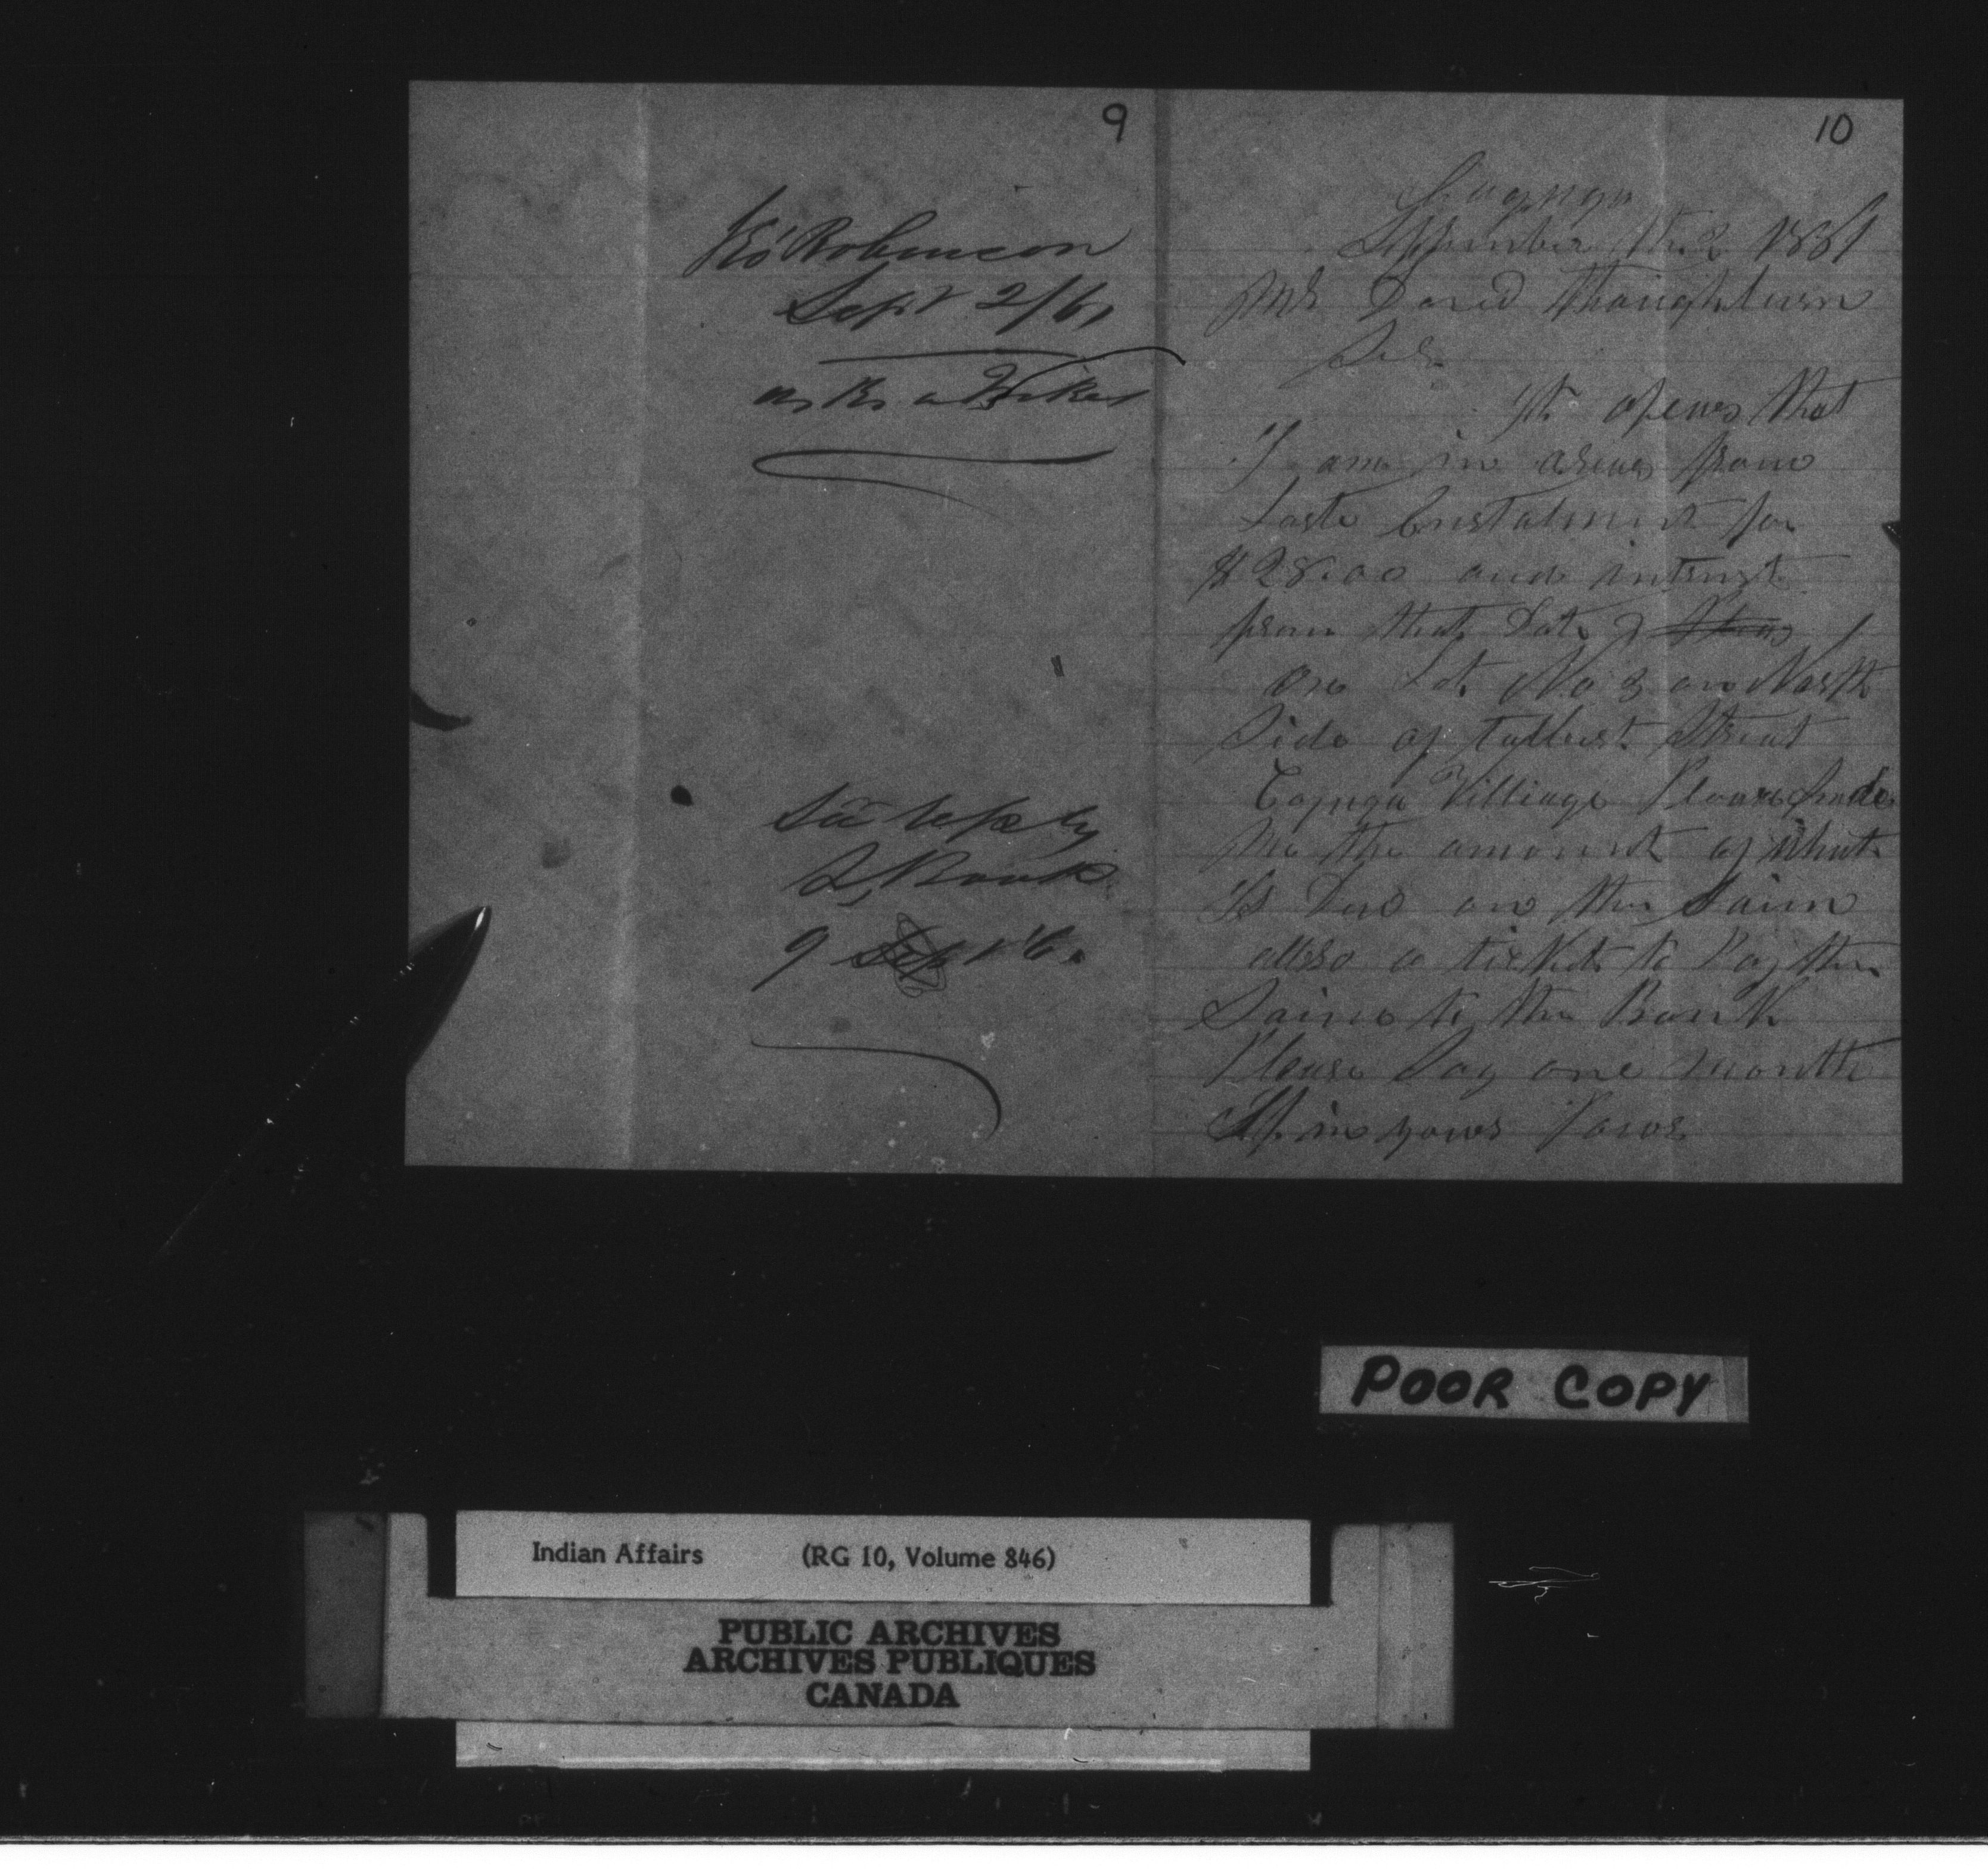 9
Geo Robinson
Sept 2/61
asks a Ticket
9 Sept 61
10
Cayuga
September the 2 1861
Mr David Thoughburn
Sir
It apears that
I am in arears from
Laste Enstalment for
$28.00 and intrest
from that Date
on Lot No 3 on North
Side of talbert Streat
Cayuga Villiage Please Send
me the amount of what
Is Due on the Saim
allso a ticket to Pay the
Saim to the Bank
Please Say one month
If in youer Power
POOR COPY
Indian Affairs (RG 10, Volume 846)
PUBLIC ARCHIVES
ARCHIVES PUBLIQUES
CANADA